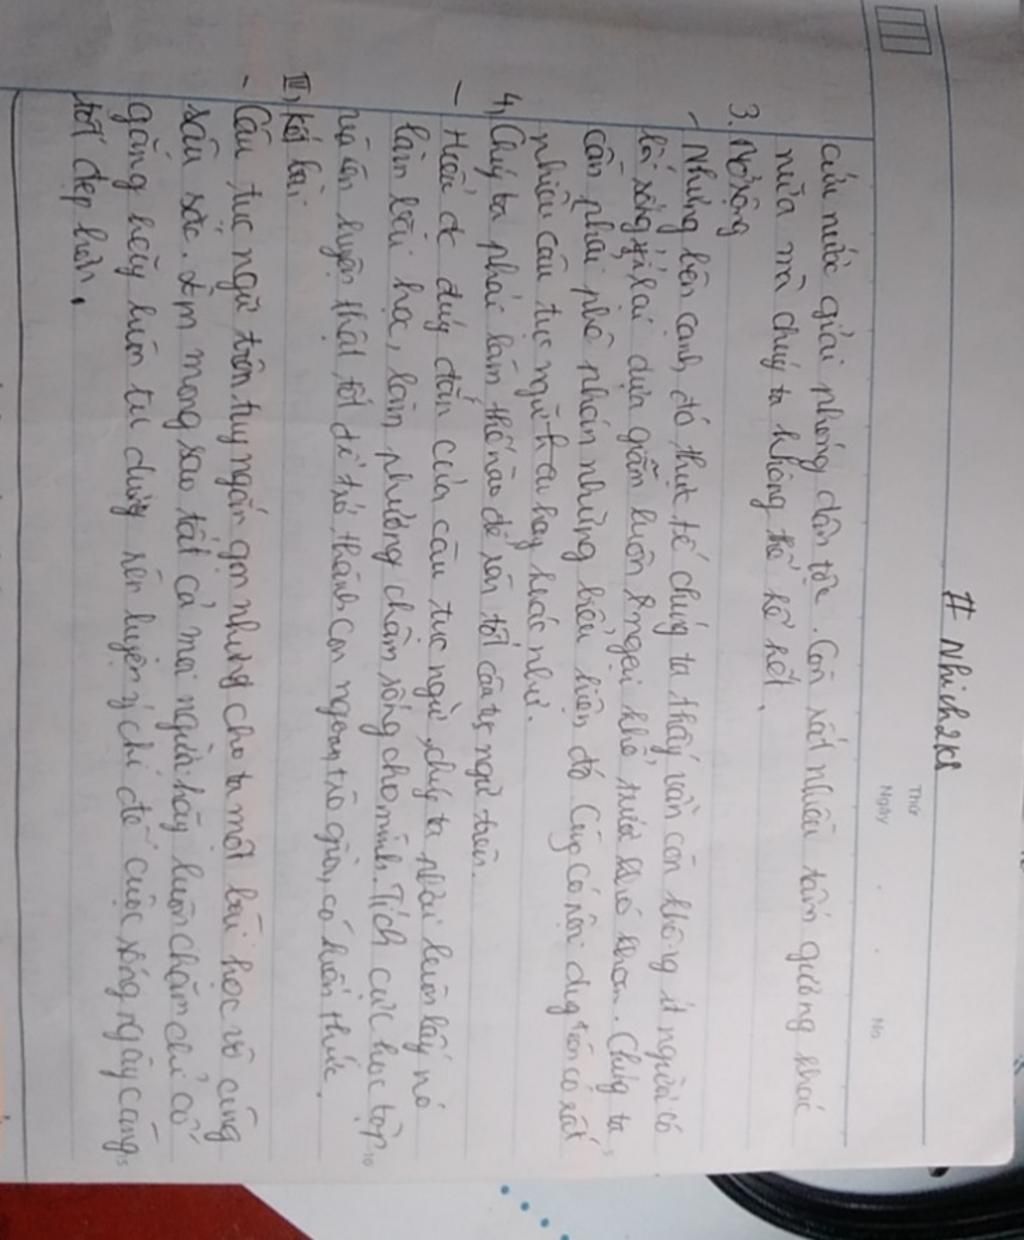 # Nhich2k8
Thứ
Ngày No
cứu nước giải phóng dân tộc. Còn rất nhiều tấm gương khác
nữa mà chúg ta không thể kể hết.
3. Mở rộng
- Nhưng bên cạnh đó, thực tế chúng ta thấy vẫn còn không ít người có
lối sống ỷ lại dựa giẫm luôn ngại khổ trước khó khăn. Chúng ta
cần phải phê phán những biểu hiện đó Cũng có nội dug trên có rất
nhiều câu tục ngữ hay khác như.
4, Chúg ta phải làm thế nào để rèn tốt câu tục ngữ trên.
- Hiểu đc đúg đắn của câu tục ngữ, chúg ta phải luôn lấy nó
làm bài học, làm phương châm sống cho mình. Tích cực học tập
và rèn luyện thật tốt để trở thành con ngoan, trò giỏi, có kiến thức.
III, Kết bài.
- Câu tục ngữ trên tuy ngắn gọn nhưng cho ta một bài học vô cùng
sâu sắc. Em mong sao tất cả mọi người hãy luôn chăm chỉ cố
gắng hãy luôn tu dưỡng rèn luyện ý chí để cuộc sống ngày càng
tốt đẹp hơn.
5
10
15